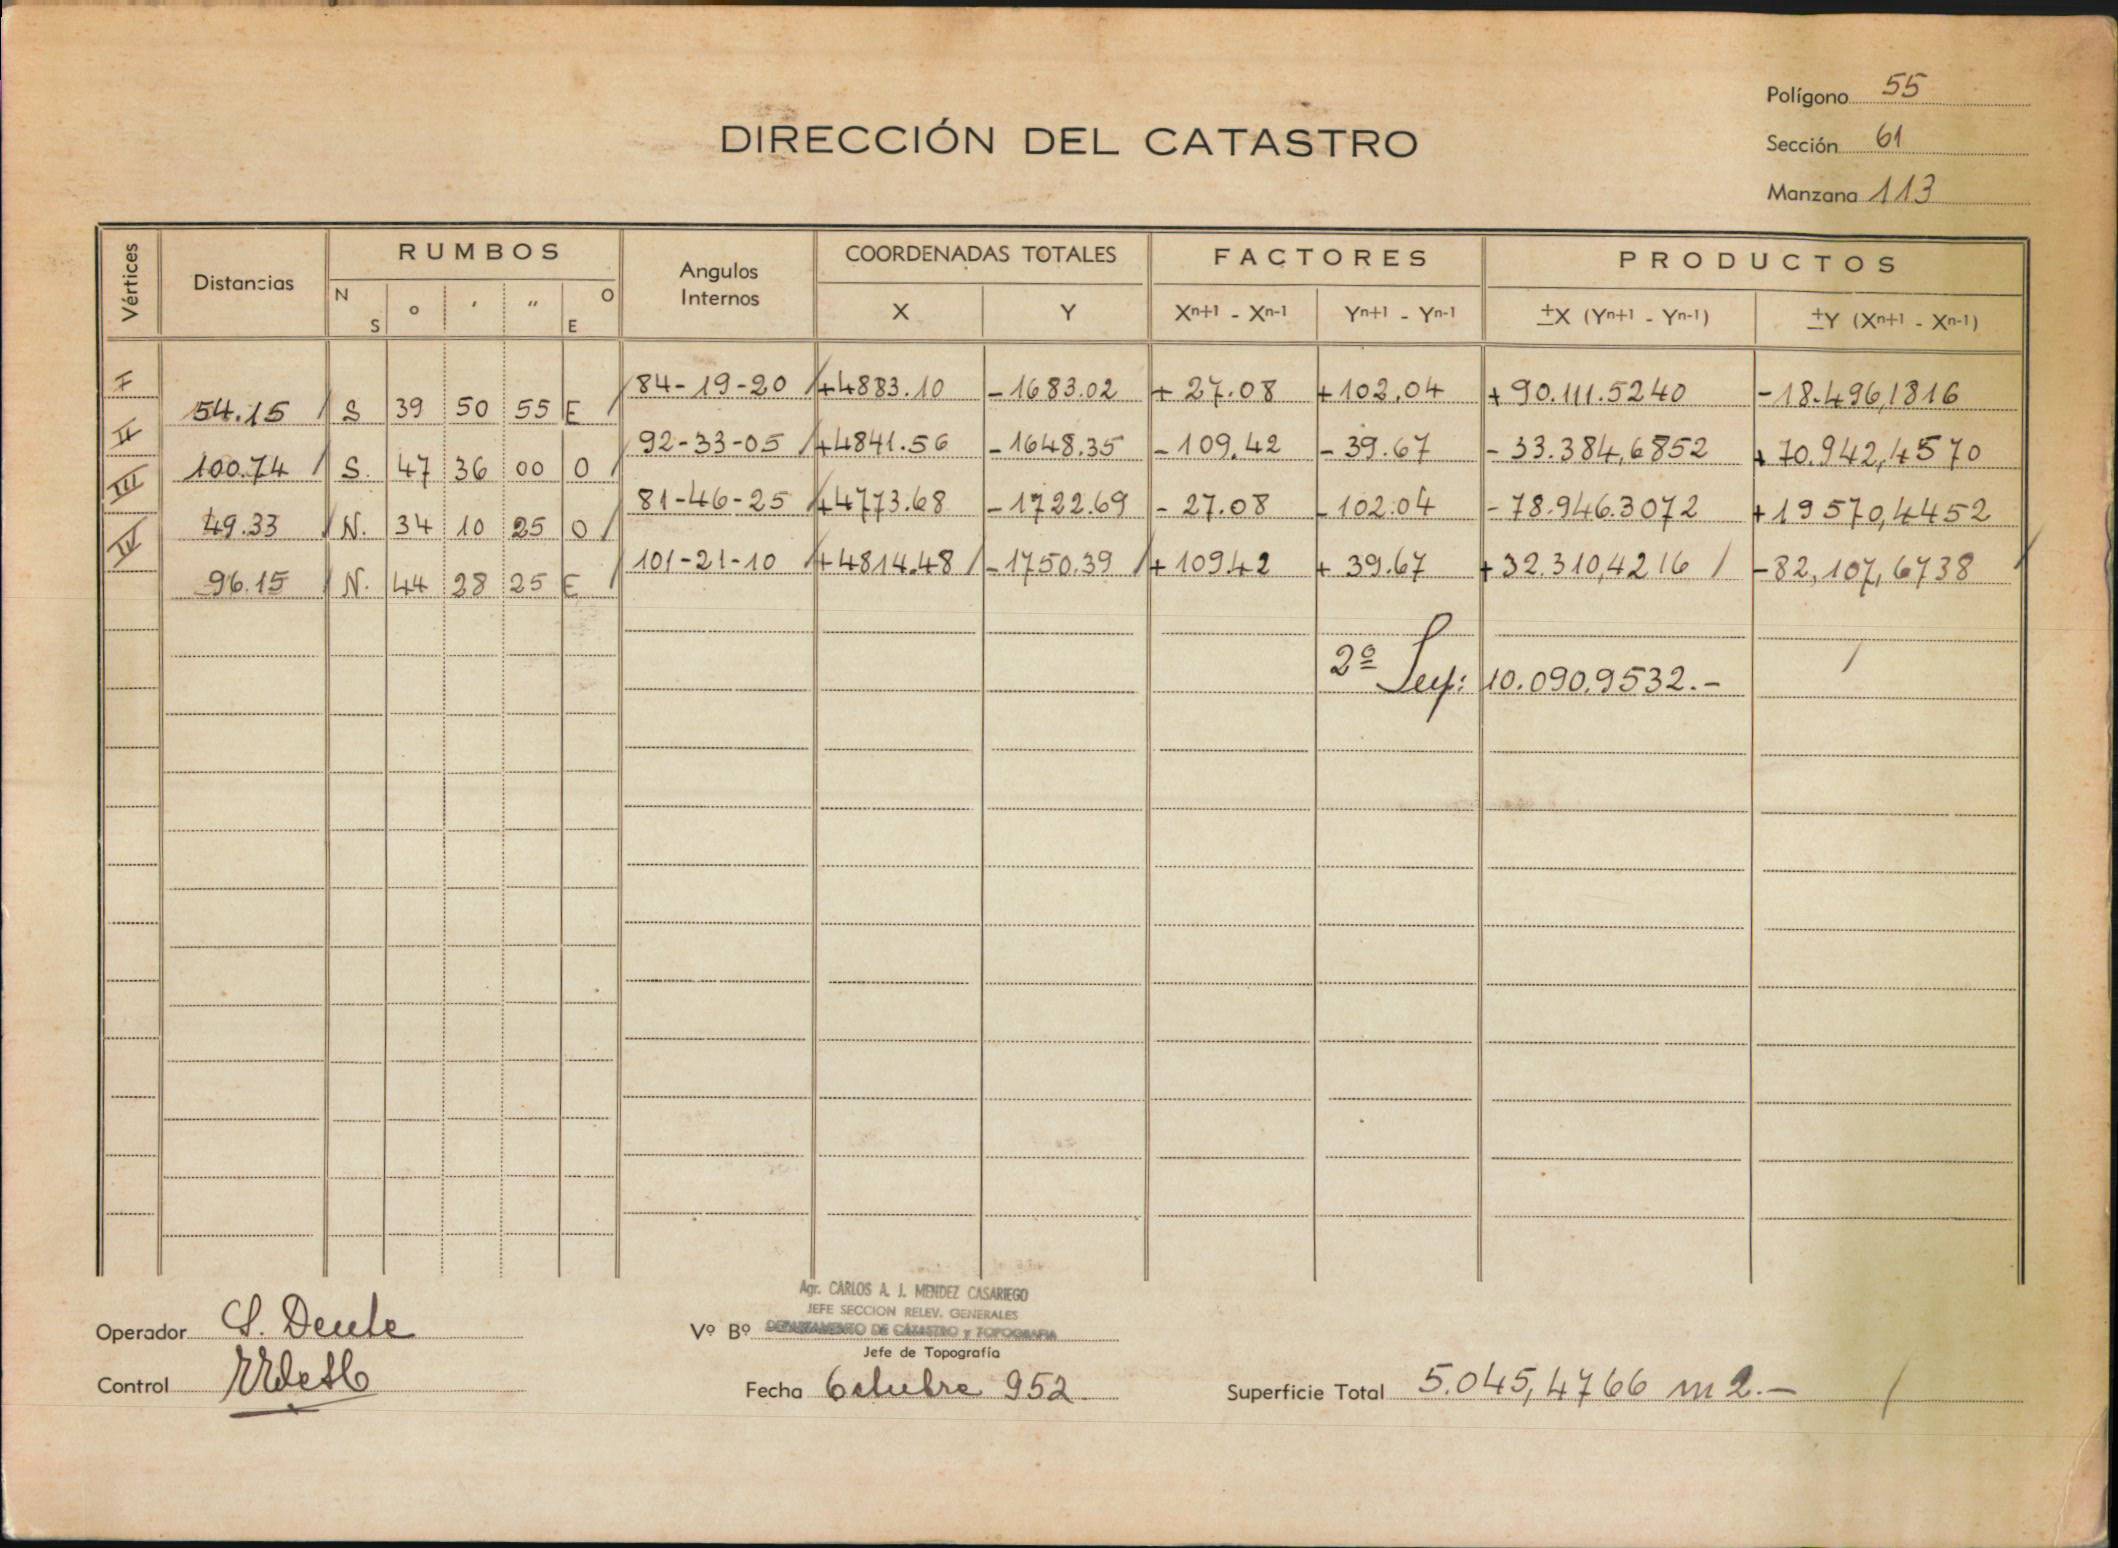 Polígono 55
DIRECCIÓN DEL CATASTRO
Sección 61
Manzana 113
Vértices Distancias RUMBOS Angulos Internos COORDENADAS TOTALES FACTORES PRODUCTOS
N S ° ' " O E X Y Xn+1 - Xn-1 Yn+1 - Yn-1 ±X (Yn+1 - Yn-1) ±Y (Xn+1 - Xn-1)
I 84-19-20 +4883.10 -1683.02 + 27.08 +102.04 + 90.111.5240 -18.496,1816
54.15 S 39 50 55 E
II 92-33-05 +4841.56 -1648.35 -109.42 - 39.67 - 33.384,6852 + 70.942,4570
100.74 S. 47 36 00 O
III 81-46-25 +4773.68 -1722.69 - 27.08 -102.04 -78.946.3072 +19570,4452
49.33 N. 34 10 25 O
IV 101-21-10 +4814.48 -1750.39 +109.42 + 39.67 +32.310,4216 -82,107,6738
96.15 N. 44 28 25 E
2ª Sup: 10.090.9532.-
Agr. CARLOS A. J. MENDEZ CASARIEGO
JEFE SECCION RELEV. GENERALES
Operador S. Deule Vº Bº DEPARTAMENTO DE CATASTRO y TOPOGRAFIA
Jefe de Topografía
Control Fecha Octubre 952 Superficie Total 5.045,4766 m2.-